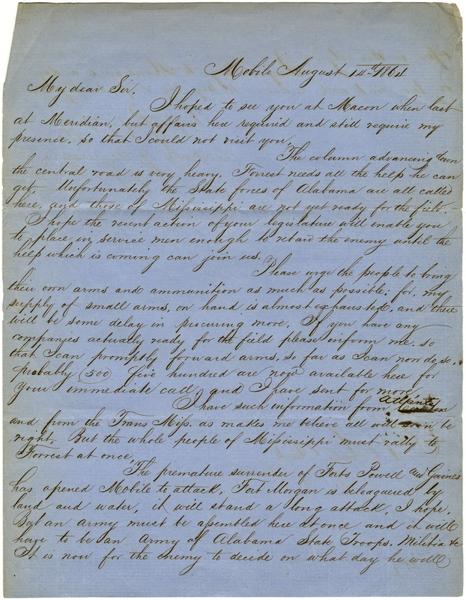 Mobile August 14th 1864
My dear Sir,
I hoped to see you at Macon when last
at Meridian, but affairs here required and still require my
presence, so that I could not visit you.
The column advancing down
the central road is very heavy. Forrest needs all the help he can
get. Unfortunately the State forces of Alabama are all called
here, and those of Mississippi are not yet ready for the field.
I hope the recent action of your legislature will enable you
to place in service men enough to retard the enemy until the
help which is coming can join us.
Please urge the people to bring
their own arms and ammunition as much as possible; for, my
supply of small arms, on hand is almost exhausted, and there
will be some delay in procuring more. If you have any
companies actually ready for the field please inform me, so
that I can promptly forward arms, so far as I can now do so.
probably 500 five hundred are now available here for
your immediate call, and I have sent for more.
I have such information from Atlanta
and from the Trans Miss. as makes me believe all will soon be
right. But the whole people of Mississippi must rally to
Forrest at once.
The premature surrender of Forts Powell and Gaines
has opened Mobile to attack. Fort Morgan is beleaguered by
land and water, it will stand a long attack, I hope.
But an army must be assembled here at once and it will
have to be an Army of Alabama State Troops, Militia &c
It is now for the enemy to decide on what day he will